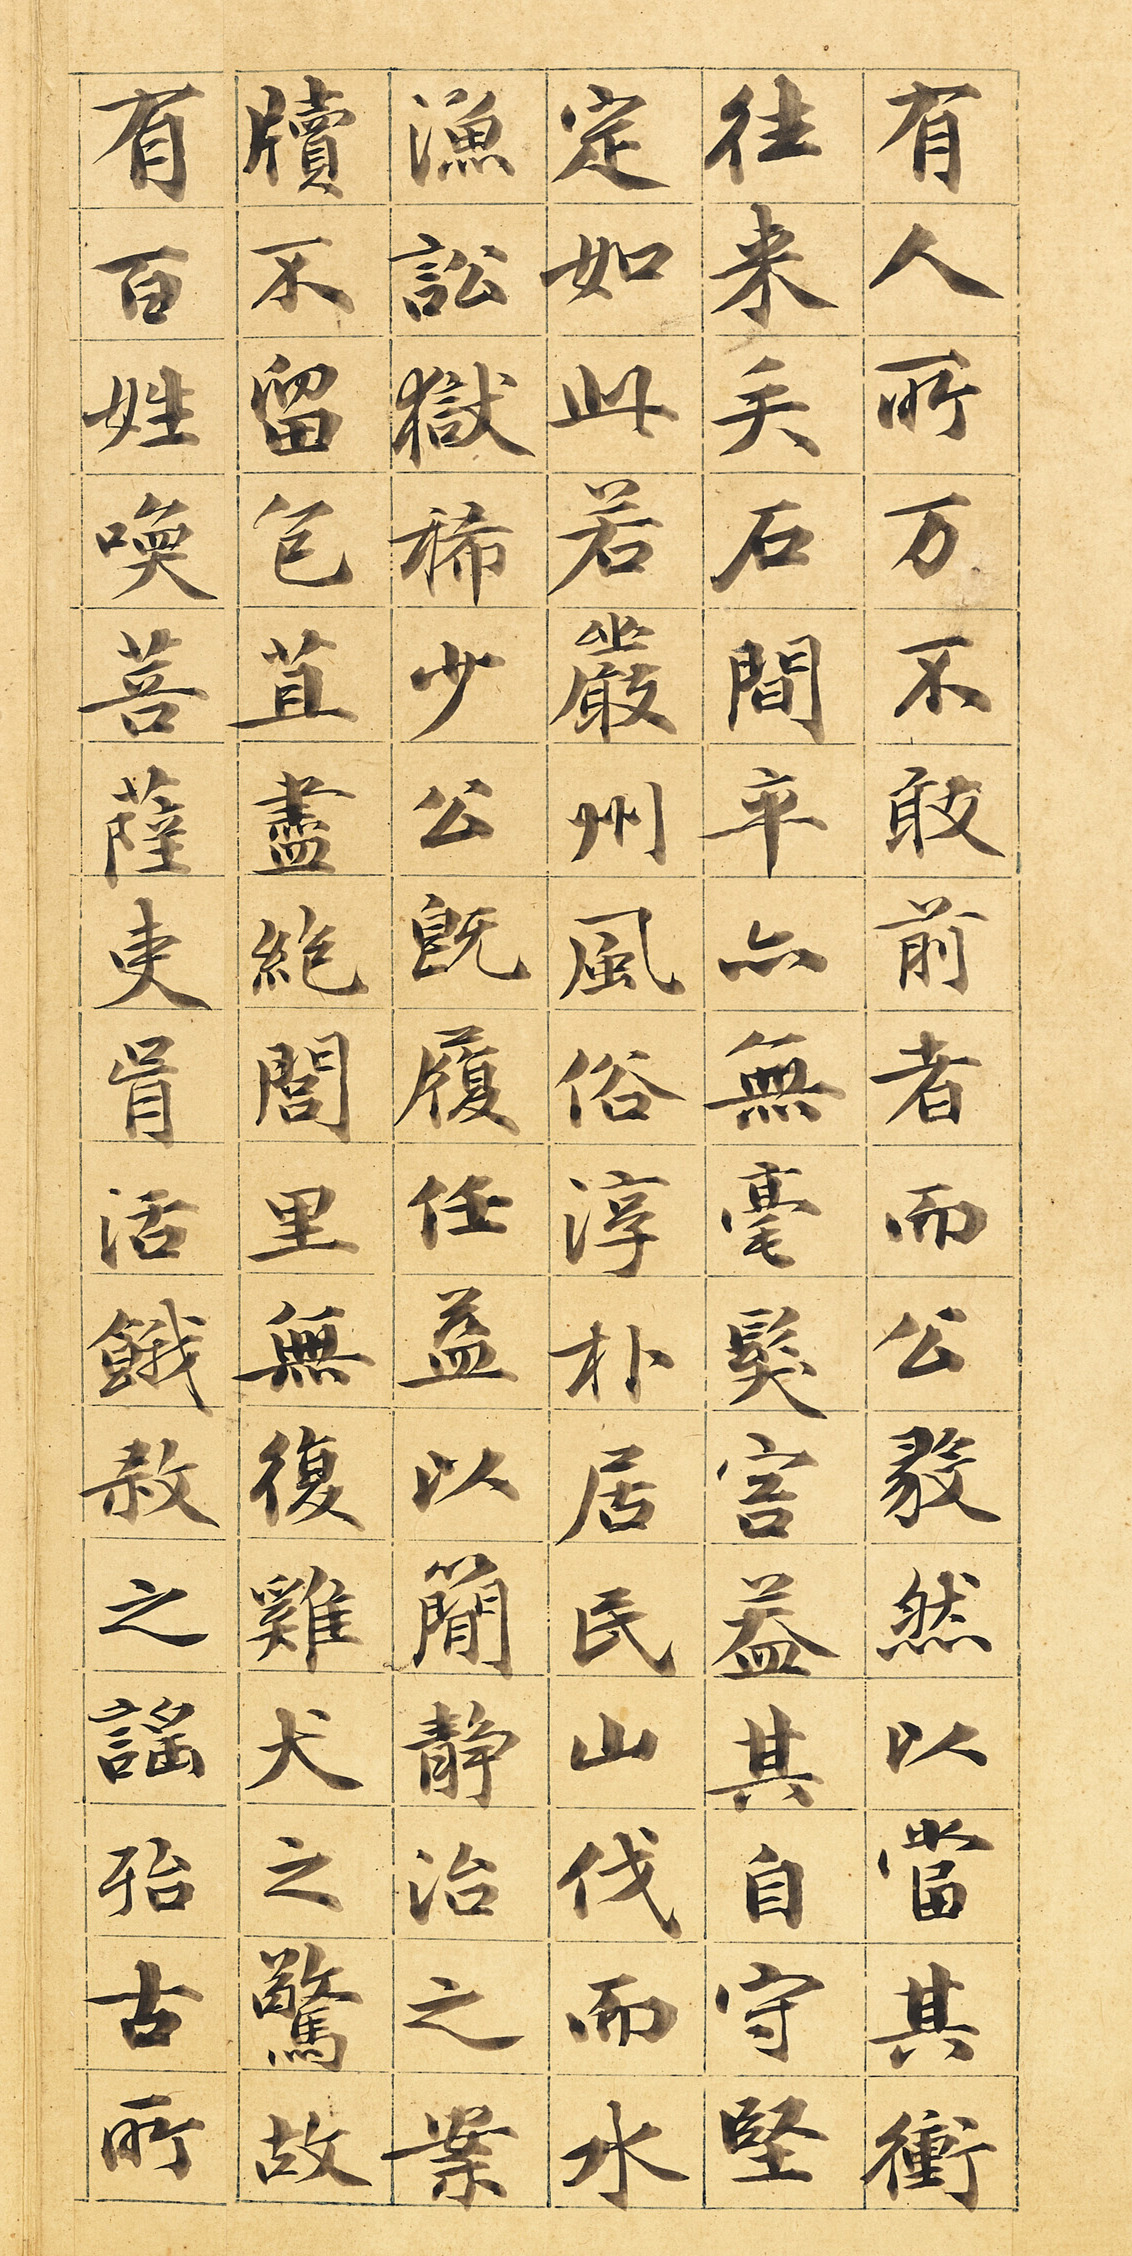 有人所万不敢前者而公毅然以當其衝
往来矢石間卒亦無毫髮害益其自守堅
定如此若嚴州風俗淳朴居民山伐而水
漁訟獄稀少公既履任益以簡静治之案
牘不留苞苴盡絶閭里無復雞犬之驚故
有百姓喚菩薩吏胥活餓莩之謡殆古所